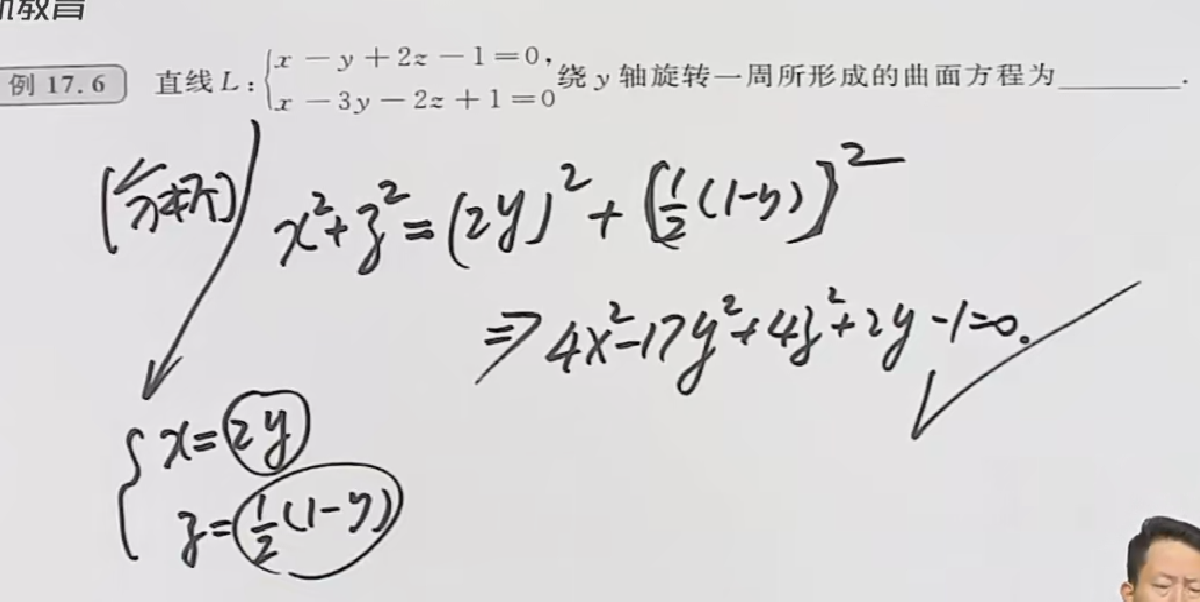 机教育
例 17.6 直线 L：{x－y＋2z－1＝0，
x－3y－2z＋1＝0 绕 y 轴旋转一周所形成的曲面方程为________.
[分析]
x²+z²=(2y)²+[½(1-y)]²
⇒4x²-17y²+4z²+2y-1=0.
{x=2y
z=½(1-y)